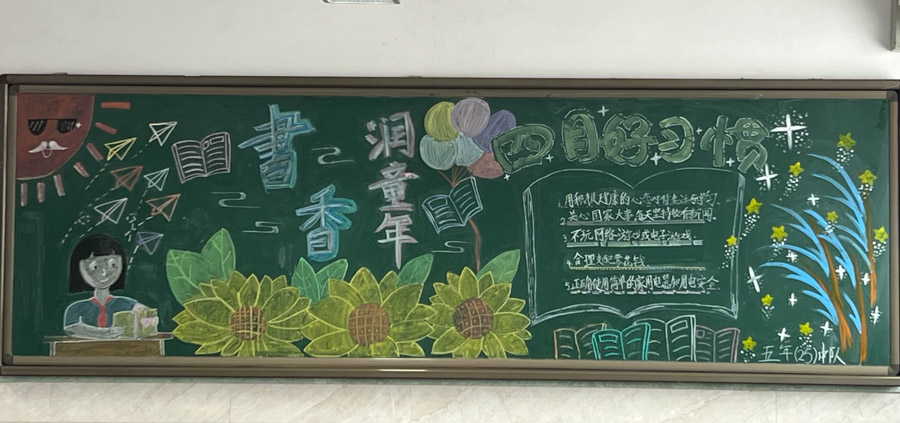 書香
润童年
四月好习惯
1.用积极健康的心态对待生活与学习
2.关心国家大事,每天坚持收看新闻
3.不玩网络游戏或电子游戏
4.合理支配零花钱
5.正确使用简单的家用电器和用电安全
五年(25)中队